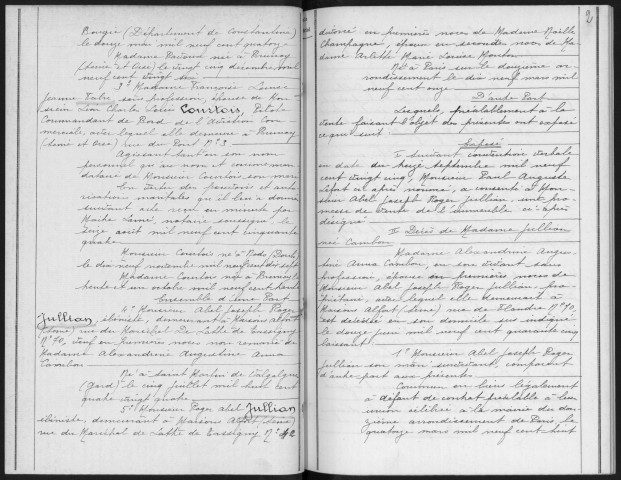 Bougie (Département de Constantine)
le douze mars mil neuf cent quatorze
Madame née à Brunoy
(Seine et Oise) le vingt cinq décembre mil
neuf cent vingt six
3° Madame Françoise Louise
Jeanne Fabre, sans profession, épouse de Mon-
sieur Jean Charles Courtois, Pilote
Commandant de Bord de l'Aviation Com
merciale, avec lequel elle demeure à Brunoy
(Seine et Oise) rue du Pont N° 3
Agissant tant en son nom
personnel qu'au nom et comme man
dataire de Monsieur Courtois, son mari
En vertu des pouvoirs et auto
risations maritales que il lui a donné
suivant acte reçu en minute par
Maître Lamé, notaire soussigné le
seize août mil neuf cent cinquante
quatre
Monsieur Courtois né à Dôle (Jura)
le dix neuf novembre mil neuf cent dix sept
Madame Courtois née à Brunoy le
trente et un octobre mil neuf cent trente
Ensemble d'Une Part
4° Monsieur Abel Joseph Roger
Jullian, ébéniste, demeurant à Maisons Alfort
(Seine) rue du Maréchal De Lattre de Tassigny
N° 40, veuf en premières noces non remarié de
Madame Alexandrine Augustine Anna
Cambon
Né à Saint Martin de Valgalgues
(Gard) le cinq juillet mil huit cent
quatre vingt quatre
5° Monsieur Roger Abel Jullian
ébéniste, demeurant à Maisons Alfort (Seine)
rue du Maréchal de Lattre de Tassigny N° 42
2
divorcé en premières noces de Madame Noëlle
Champagne, époux en secondes noces de Ma
dame Arlette Marie Louise Mouton
Né à Paris sur le douzième ar
rondissement le dix neuf mars mil
neuf cent onze
D'autre Part
Lesquels, préalablement à la
vente faisant l'objet des présentes ont exposé
ce qui suit
Exposé
I Suivant convention verbale
en date du seize septembre mil neuf
cent vingt cinq, Monsieur Paul Auguste
ci après nommé, a consenti à Mon-
sieur Abel Joseph Roger Jullian, une pro
messe de vente de l'immeuble ci-après
désigné
II Décès de Madame Jullian
née Cambon
Madame Alexandrine Augus
tine Anna Cambon, en son vivant sans
profession, épouse en premières noces de
Monsieur Abel Joseph Roger Jullian, pro
priétaire, avec lequel elle demeurait à
Maisons Alfort (Seine) rue de Flandre N° 40
est décédée en son domicile sus indiqué
le douze juin mil neuf cent quarante cinq
laissant
1° Monsieur Abel Joseph Roger
Jullian son mari survivant, comparant
d'autre part aux présentes
Commun en biens légalement
à défaut de contrat préalable à leur
union célébrée à la mairie du dou
zième arrondissement de Paris, le
quatorze mars mil neuf cent huit